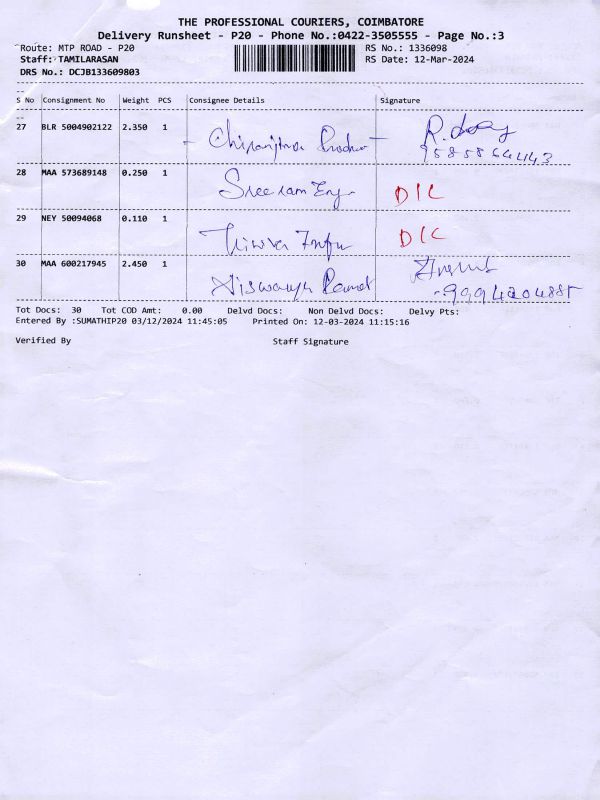 THE PROFESSIONAL COURIERS, COIMBATORE
Delivery Runsheet - P20 - Phone No.:0422-3505555 - Page No.:3
Route: MTP ROAD - P20 RS No.: 1336098
Staff: TAMILARASAN RS Date: 12-Mar-2024
DRS No.: DCJB133609803
S No Consignment No Weight PCS Consignee Details Signature
27 BLR 5004902122 2.350 1
28 MAA 573689148 0.250 1 Sreeram Eng. D/C
29 NEY 50094068 0.110 1 D/C
30 MAA 600217945 2.450 1
Tot Docs: 30 Tot COD Amt: 0.00 Delvd Docs: Non Delvd Docs: Delvy Pts:
Entered By :SUMATHIP20 03/12/2024 11:45:05 Printed On: 12-03-2024 11:15:16
Verified By Staff Signature